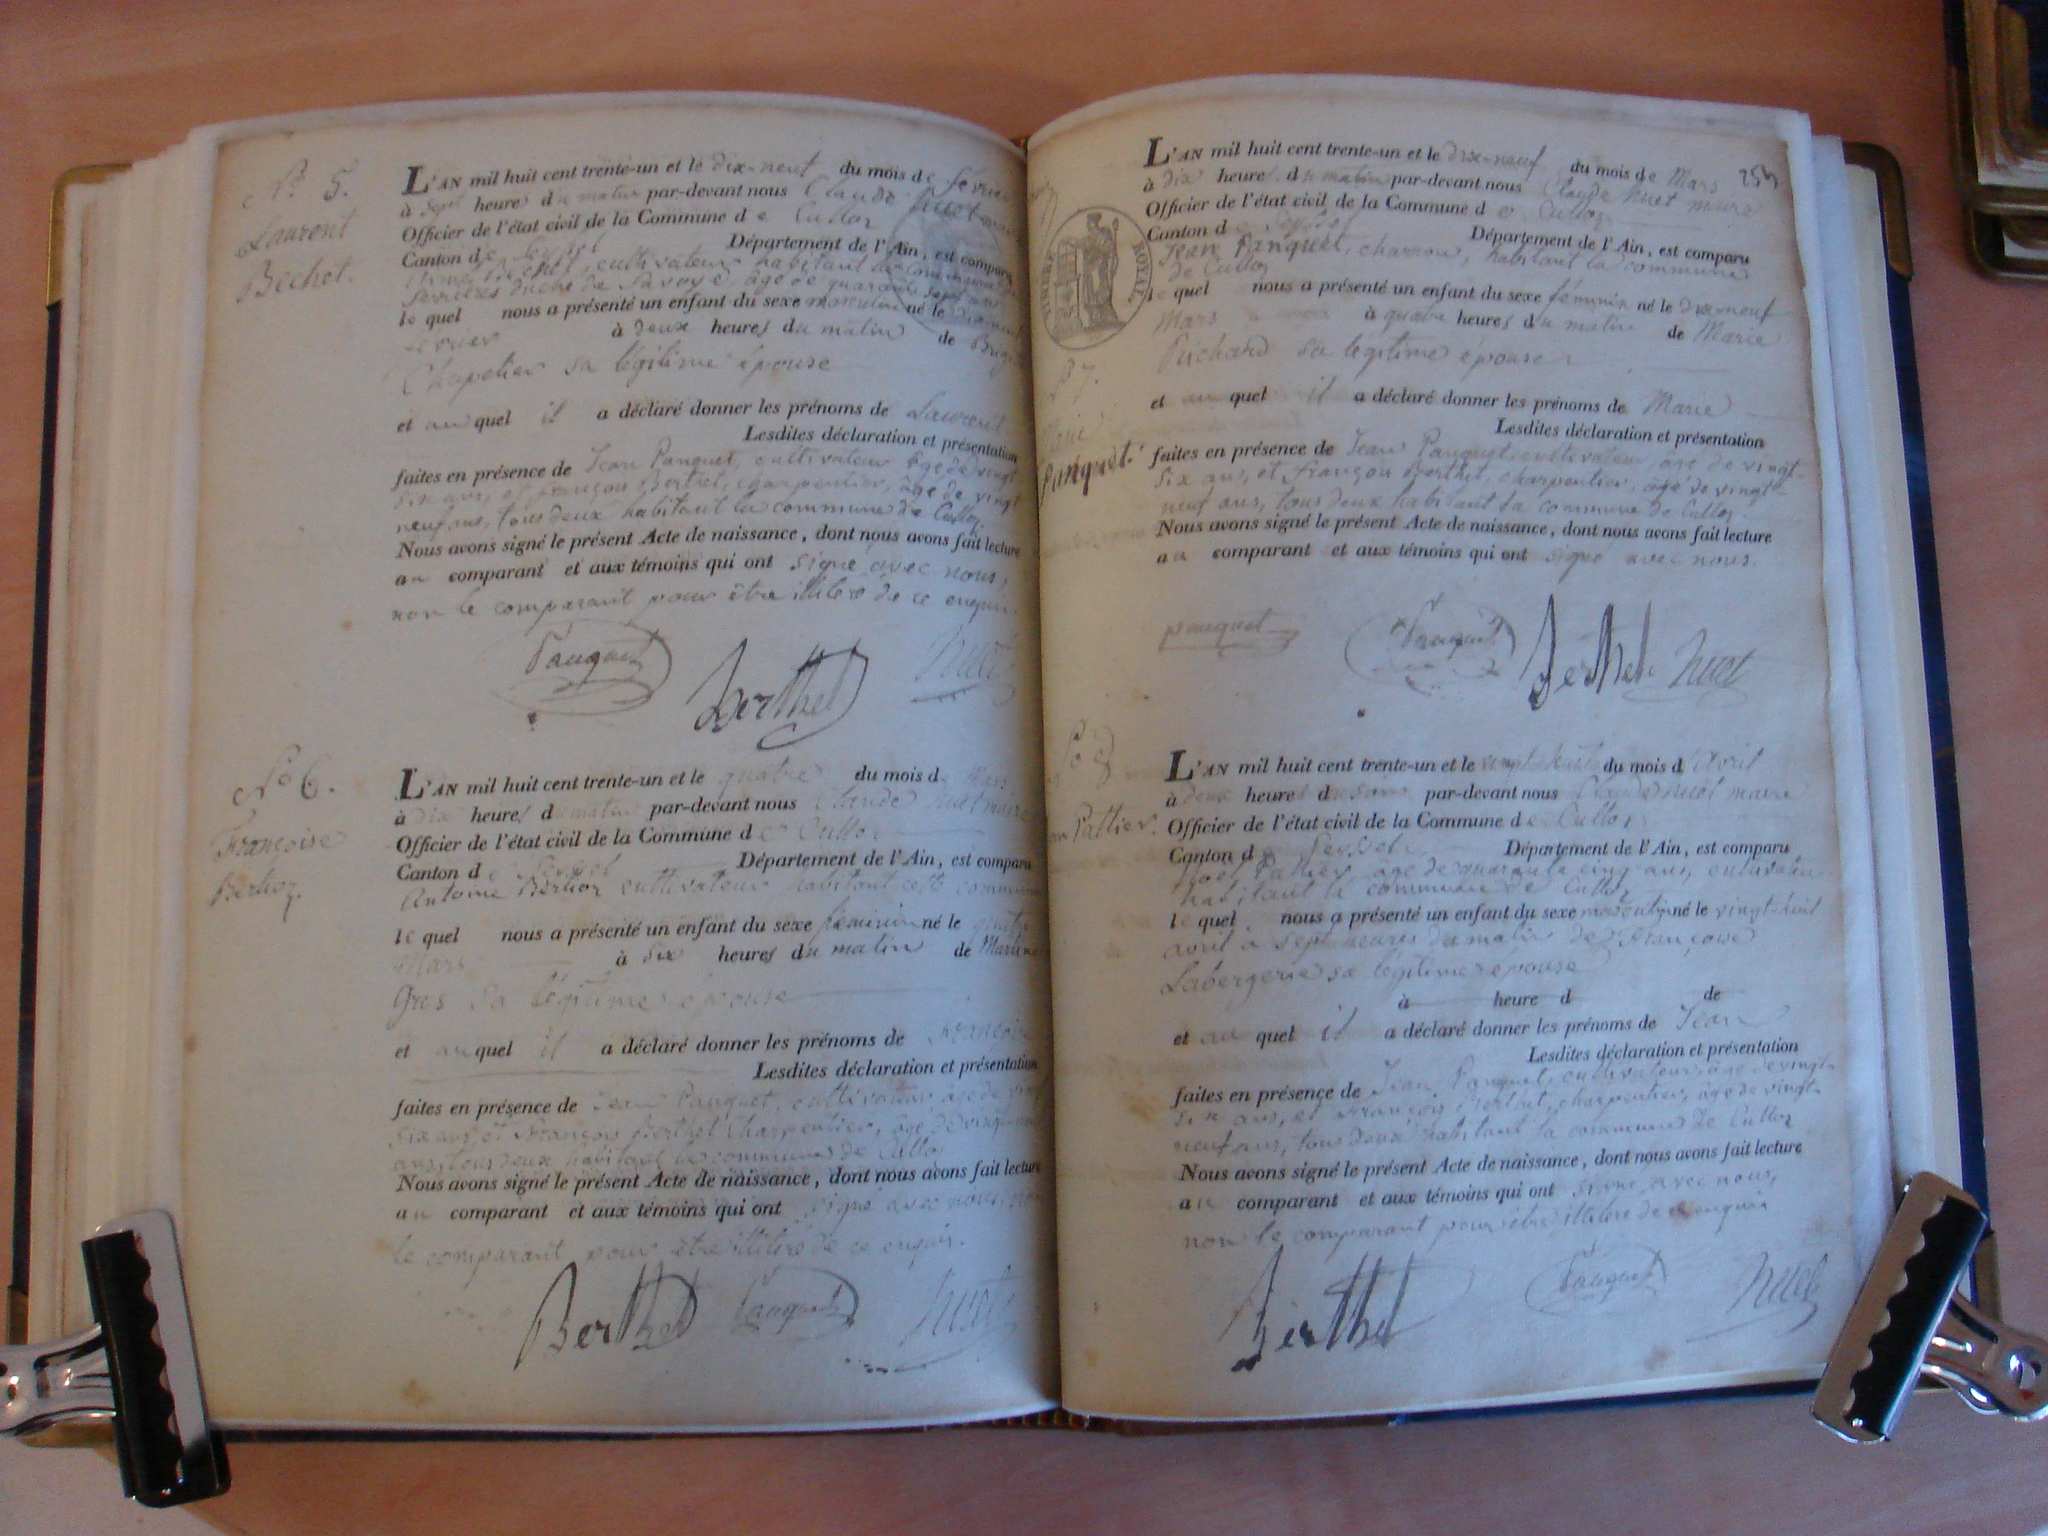 N° 5.
Laurent
Bechet.
L'AN mil huit cent trente-un et le dix-neuf du mois de fevrier
à sept heures du matin par-devant nous Claude Nuet
Officier de l'état civil de la Commune de Culloz
Canton de Seyssel Département de l'Ain, est comparu
cultivateur habitant la commune
duché de Savoye, âgé de quarante sept ans
lequel nous a présenté un enfant du sexe masculin né le dix neuf
fevrier à deux heures du matin de
Chapelier sa légitime épouse
et auquel il a déclaré donner les prénoms de Laurent
Lesdites déclaration et présentation
faites en présence de Jean Pauquet, cultivateur âgé de vingt
six ans, et françois Berthet, charpentier, âgé de vingt
neuf ans, tous deux habitant la commune de Culloz.
Nous avons signé le présent Acte de naissance, dont nous avons fait lecture
au comparant et aux témoins qui ont signé avec nous,
non le comparant pour être illitéré de ce enquis.
Pauquet Berthet Nuet
N° 6.
Françoise
Berlioz.
L'AN mil huit cent trente-un et le quatre du mois de Mars
à dix heures du matin par-devant nous Claude Nuet maire
Officier de l'état civil de la Commune de Culloz
Canton de Seyssel Département de l'Ain, est comparu
Antoine Berlioz cultivateur habitant cette commune
lequel nous a présenté un enfant du sexe féminin né le quatre
Mars à six heures du matin de
Gros sa légitime épouse
et auquel il a déclaré donner les prénoms de Françoise
Lesdites déclaration et présentation
faites en présence de Jean Pauquet, cultivateur âgé de vingt
six ans, et François Berthet Charpentier, âgé de vingt neuf
ans, tous deux habitant la commune de Culloz
Nous avons signé le présent Acte de naissance, dont nous avons fait lecture
au comparant et aux témoins qui ont signé avec nous, non
le comparant pour être illitéré de ce enquis.
Berthet Pauquet Nuet
254
TIMBRE ROYAL
N° 7.
Marie
Pauquet.
L'AN mil huit cent trente-un et le dix-neuf du mois de Mars
à dix heures du matin par-devant nous Claude Nuet maire
Officier de l'état civil de la Commune de Culloz
Canton de Seyssel Département de l'Ain, est comparu
Jean Pauquet, charron, habitant la commune
de Culloz
lequel nous a présenté un enfant du sexe féminin né le dix-neuf
Mars à quatre heures du matin de Marie
Richard sa légitime épouse
et auquel il a déclaré donner les prénoms de Marie
Lesdites déclaration et présentation
faites en présence de Jean Pauquet, cultivateur, âgé de vingt-
six ans, et françois Berthet, charpentier, âgé de vingt-
neuf ans, tous deux habitant la commune de Culloz.
Nous avons signé le présent Acte de naissance, dont nous avons fait lecture
au comparant et aux témoins qui ont signé avec nous.
pauquet Pauquet Berthet Nuet
N° 8
Pallier.
L'AN mil huit cent trente-un et le vingt-huit du mois d'Avril
à deux heures du soir par-devant nous Claude Nuet maire
Officier de l'état civil de la Commune de Culloz
Canton de Seyssel Département de l'Ain, est comparu
Noël Pallier âgé de quarante cinq ans, cultivateur
habitant la commune de Culloz
lequel nous a présenté un enfant du sexe masculin né le vingt-huit
avril à sept heures du matin de Françoise
Labergerie sa légitime épouse
à heure d de
et auquel il a déclaré donner les prénoms de Jean
Lesdites déclaration et présentation
faites en présence de Jean Pauquet, cultivateur, âgé de vingt-
six ans, et François Berthet, charpentier, âgé de vingt-
neuf ans, tous deux habitant la commune de Culloz
Nous avons signé le présent Acte de naissance, dont nous avons fait lecture
au comparant et aux témoins qui ont signé avec nous,
non le comparant pour être illitéré de ce enquis.
Berthet Pauquet Nuet